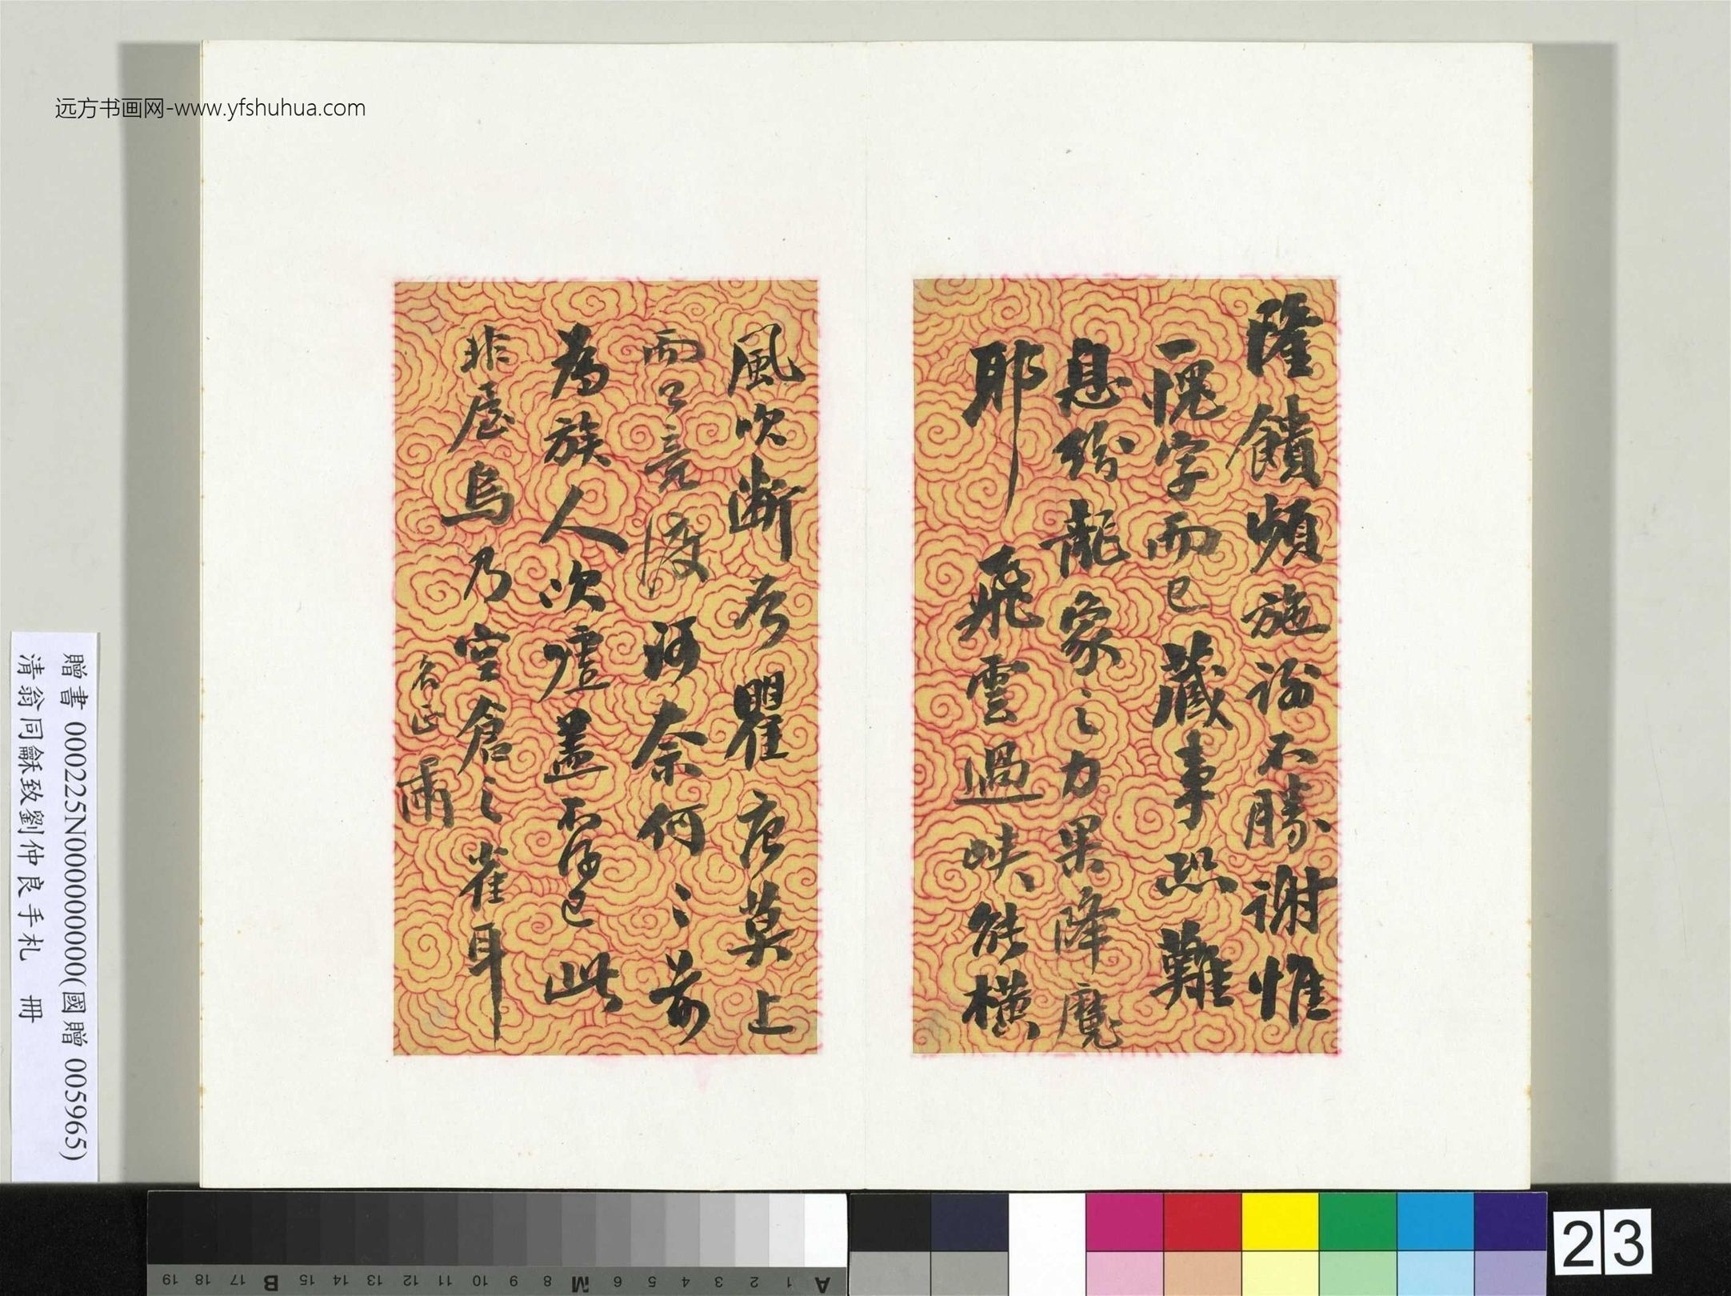 远方书画网-www.yfshuhua.com
隆饋頻施謝不勝謝惟
一愧字而已藏事恐難
息紛龍象之力果降魔
耶 飛雲過峽能橫
風吹斷否瞿唐莫上
而公竟渡河奈何〻前
為族人次
蓋不
已此
非屋烏乃空倉之雀耳
名正
贈書 000225N000000000(國贈 005965)
清翁同龢致劉仲良手札 冊
23
19 18 17 B 16 15 14 13 12 11 10 9 8 M 7 6 5 4 3 2 1 A